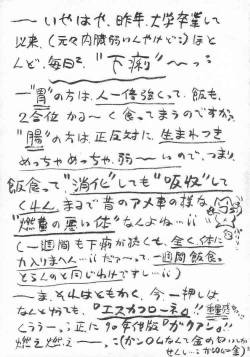 ── いやはや、昨年、大学卒業して
以来、(元々内臓弱いんやけど…)ほと
んど、毎日で、"下痢"〜っ…
─ "胃"の方は、人一倍強くって、飯も、
2合位かる〜く食ってまうのですが、
"腸"の方は、正反対に、生まれつき
めっちゃめっちゃ、弱〜いので、つまり、
飯食って、"消化"しても"吸収"して
くんない、まるで昔のアメ車の様な
"燃費の悪い体"なんよね…ii
(─一週間も下痢が続くと、全く、体に
力入りまへん…ii だァ〜って、一週間飯食。
とらんのと同じわけですし…ii)
── ま、それはともかく、今、一押しは
なんと言っても、『エスカフローネ』!!
くうう〜…正に90年代版『ガンダム』!!
燃え燃え〜…。